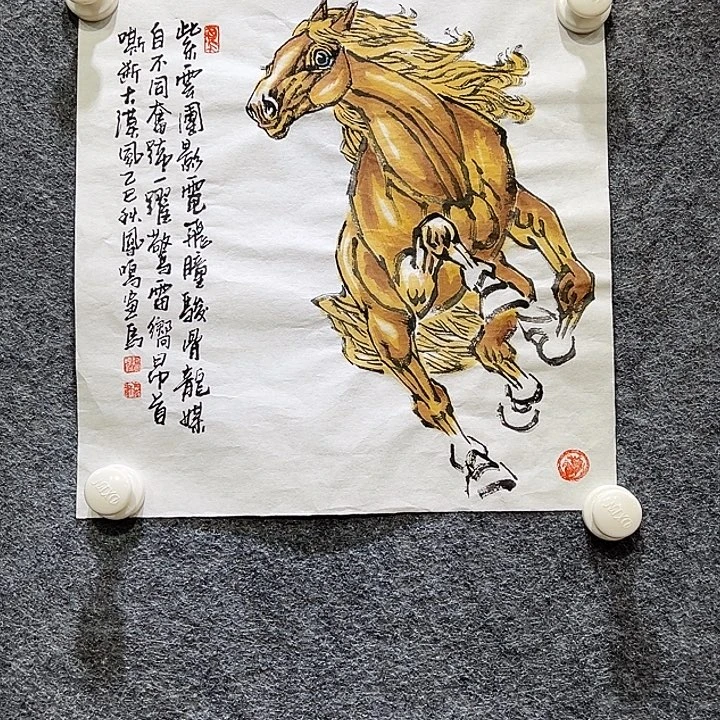 紫雲團影電飛瞳駿骨龍媒
自不同奮蹄一躍驚雷嚮昂首
嘶斷大漠風乙巳秋鳳鳴畫馬